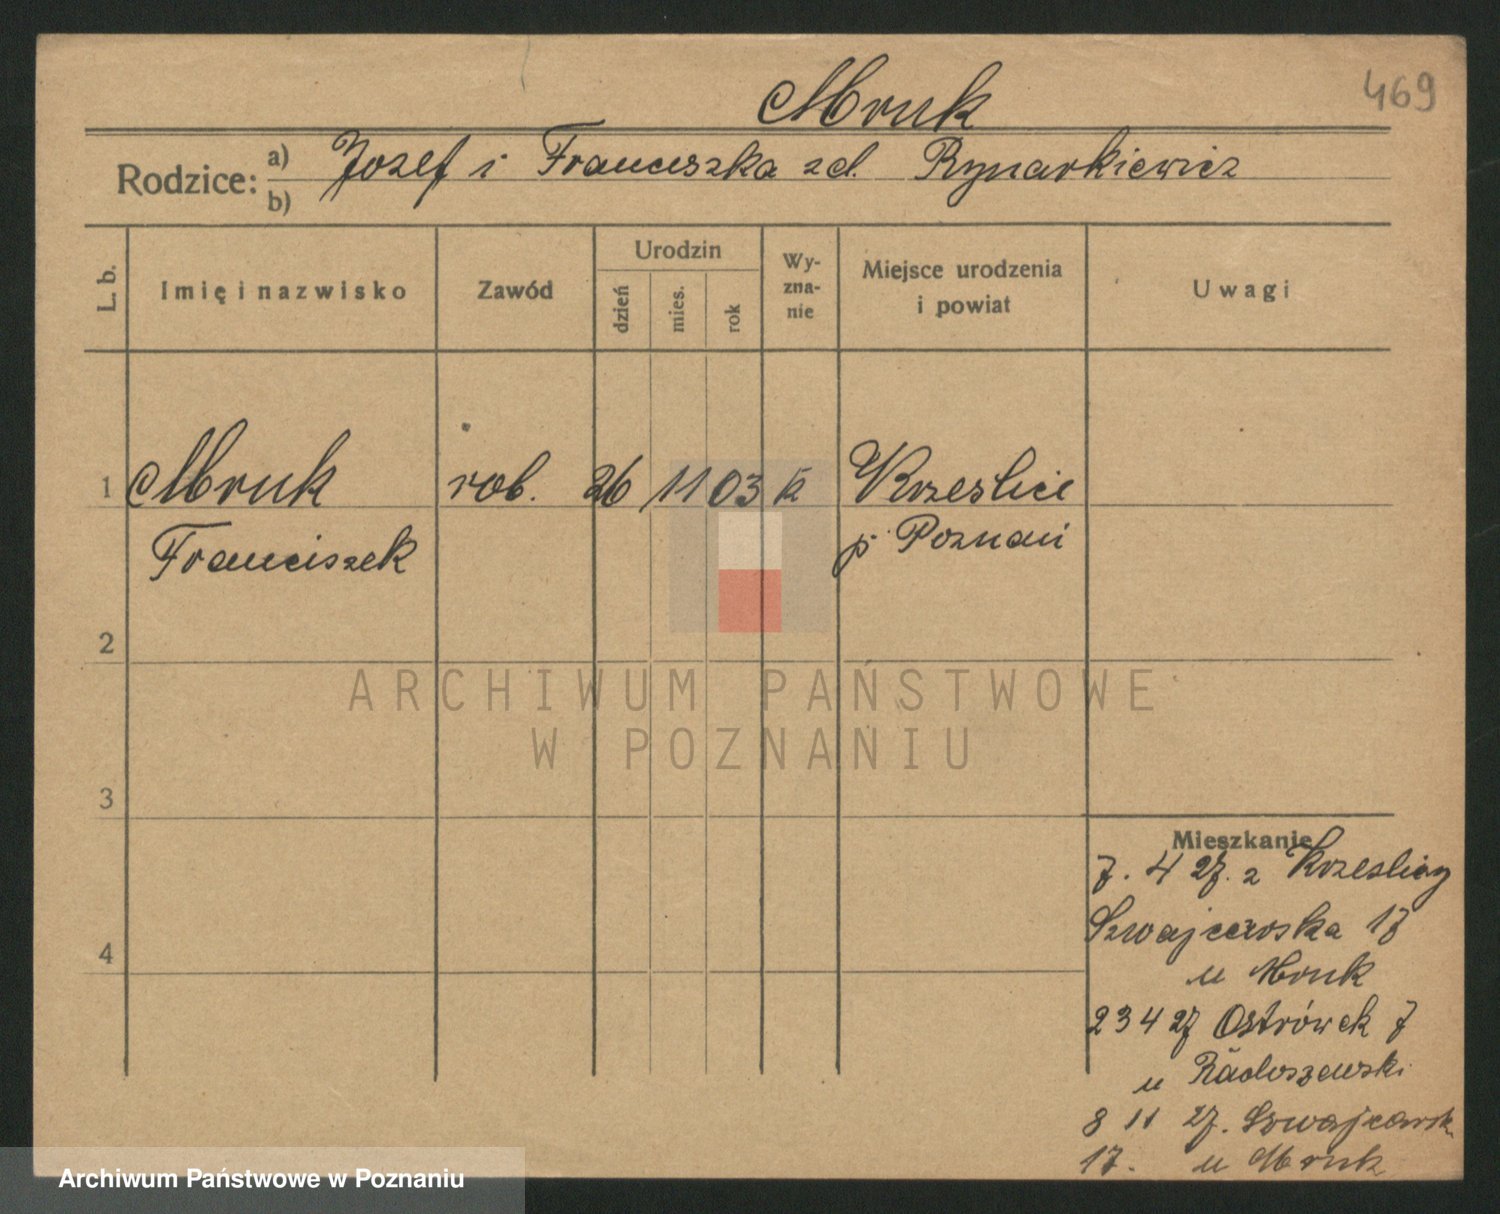 469
Mruk
Rodzice: a) Jozef i Franciszka zd. Rynarkiewicz
b)
L. b.
Imię i nazwisko
Zawód
Urodzin
dzień
mies.
rok
Wy-
zna-
nie
Miejsce urodzenia
i powiat
Uwagi
1 Mruk rob. 26 11 03 k Krześlice
Franciszek p Poznań
2
3
4
ARCHIWUM PAŃSTWOWE
W POZNANIU
Mieszkanie
7. 4 27. z Krześlicy
Szwajcarska 17
u Mruk
23 4 27 Ostrówek 7
u Radoszewski
8 11 27. Szwajcarsk
17. u Mruk
Archiwum Państwowe w Poznaniu